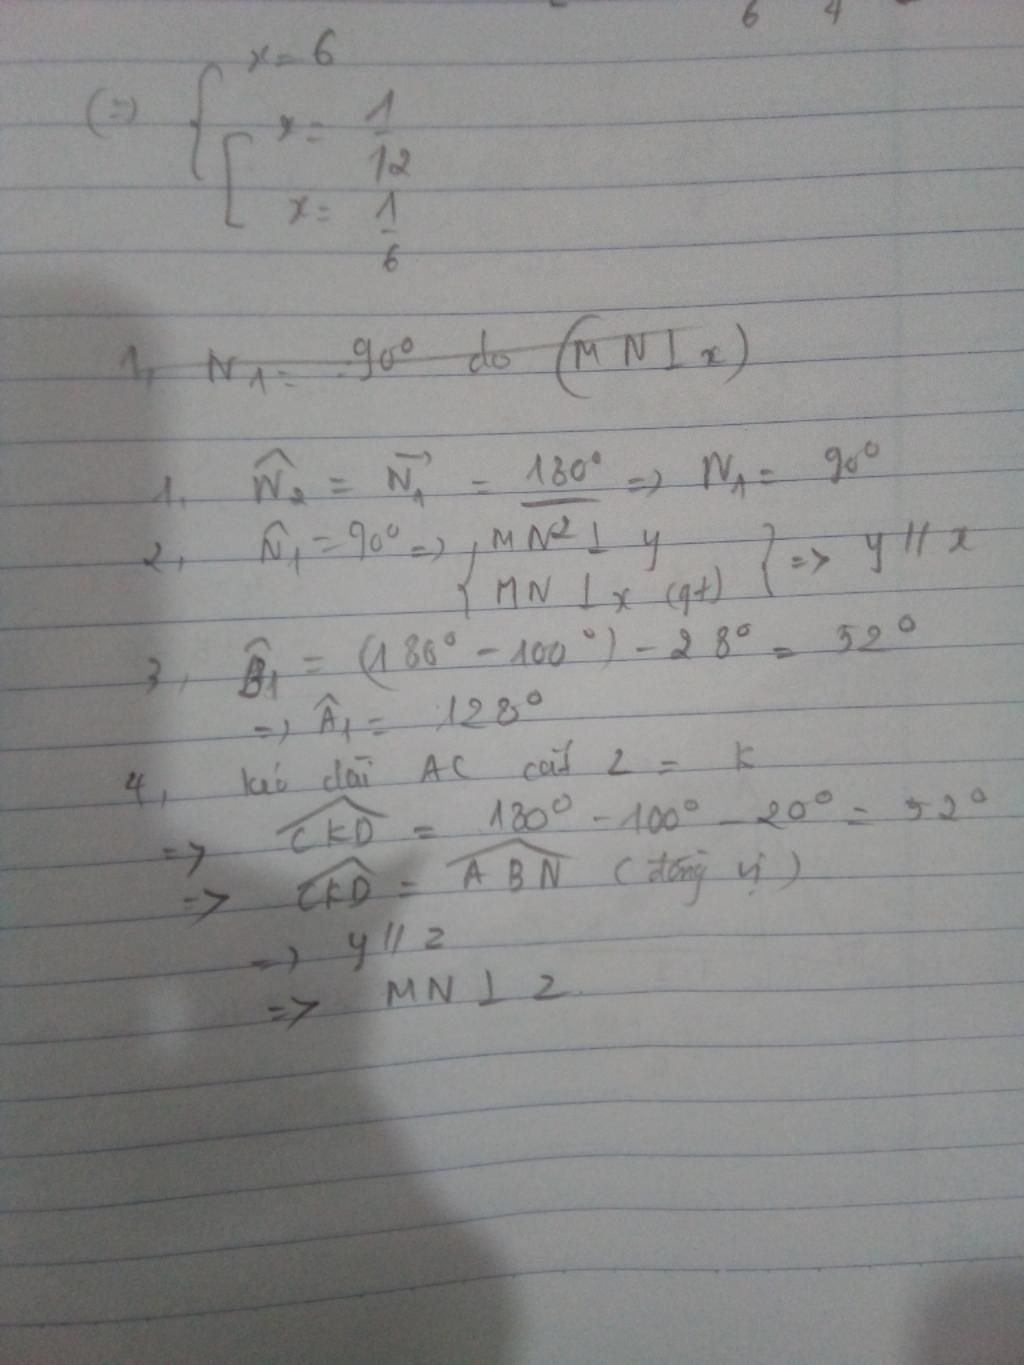 6 4
(=) x = 6
x = 1/12
x = 1/6
1, N1 = 90° do (MN ⊥ x)
1, N̂2 = N̂1 = 180°/2 => N1 = 90°
2, N̂1 = 90° => { MN ⊥ y
MN ⊥ x (gt) } => y // x
3, B̂1 = (180° - 100°) - 28° = 52°
=> Â1 = 128°
4, kéo dài AC cắt z = K
=> CKD = 180° - 100° - 20° = 52°
=> CKD = ABN (đồng vị)
=> y // z
=> MN ⊥ z.